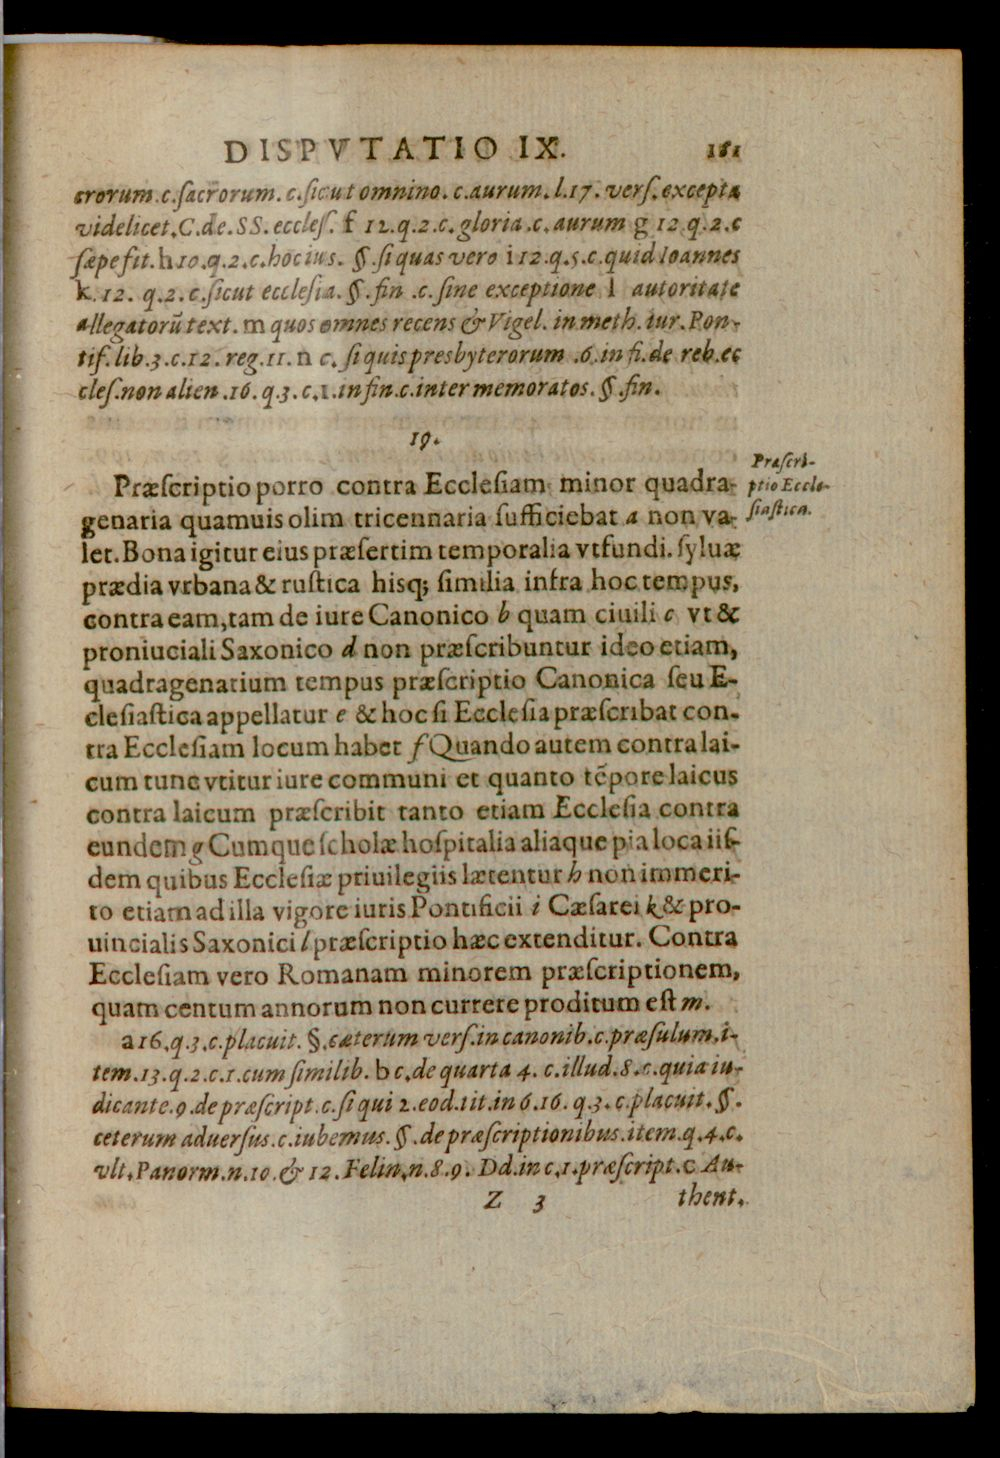 DISPVTATIO IX. 181
crorum.c.sacrorum.c.sicut omnino.c.aurum.l.17. vers.excepta
videlicet.C.de.SS.eccles. f 12.q.2.c.gloria.c.aurum g 12 q.2.c
sæpe fit.h10.q.2.c.hoc ius. §.si quas vero i 12.q.5.c.quid Ioannes
k.12. q.2.c.sicut ecclesia.§.fin .c.sine exceptione l autoritate
allegatorũ text. m quos omnes recens & Vigel. in meth. iur. Pon-
tif. lib.3.c.12. reg.11. n c. si quis presbyterorum .6.in fi.de reb.ec
cles.non alien .16. q.3. c.1.in fin.c.inter memoratos.§.fin.
19.
Præscriptio porro contra Ecclesiam minor quadra-
genaria quamuis olim tricennaria sufficiebat a non va-
let. Bona igitur eius præsertim temporalia vt fundi. syluæ
prædia vrbana & rustica hisq; similia infra hoc tempus,
contra eam, tam de iure Canonico b quam ciuili c vt &
proniuciali Saxonico d non præscribuntur ideo etiam,
quadragenarium tempus præscriptio Canonica seu E-
clesiastica appellatur e & hoc si Ecclesia præscribat con-
tra Ecclesiam locum habet f Quando autem contra lai-
cum tunc vtitur iure communi et quanto tẽpore laicus
contra laicum præscribit tanto etiam Ecclesia contra
eundem g Cumque scholæ hospitalia aliaque pia loca iis-
dem quibus Ecclesiæ priuilegiis lætentur h non immeri-
to etiam ad illa vigore iuris Pontificii i Cæsarei k & pro-
uincialis Saxonici l præscriptio hæc extenditur. Contra
Ecclesiam vero Romanam minorem præscriptionem,
quam centum annorum non currere proditum est m.
Præscri-
ptio Eccle-
siastica.
a 16.q.3.c.placuit. §.cæterum vers.in canonib.c.præsulum.i-
tem.13.q.2.c.1.cum similib. b c.de quarta 4. c.illud.8.c.quia iu-
dicante.9.de præscript.c.si qui 2.eod.tit.in 6.16. q.3. c.placuit.§.
ceterum aduersus.c.iubemus. §.de præscriptionibus.item.q.4.c.
vlt.Panorm.n.10.& 12. Felin.n.8.9. Dd.in c.1.præscript.c Au-
Z 3 thent.